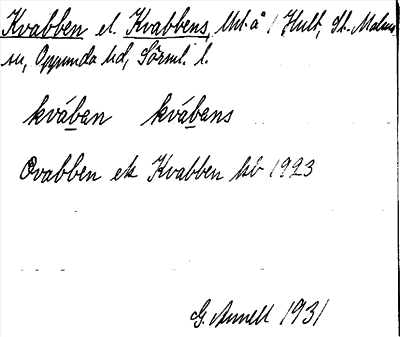 Kvabben el. Kvabbens, tht. å / Hult, St. Malm
sn, Oppunda hd, Sörml. l.
kvában kvábans
Qvabben ek Kvabben hb 1923
G. Annell 1931